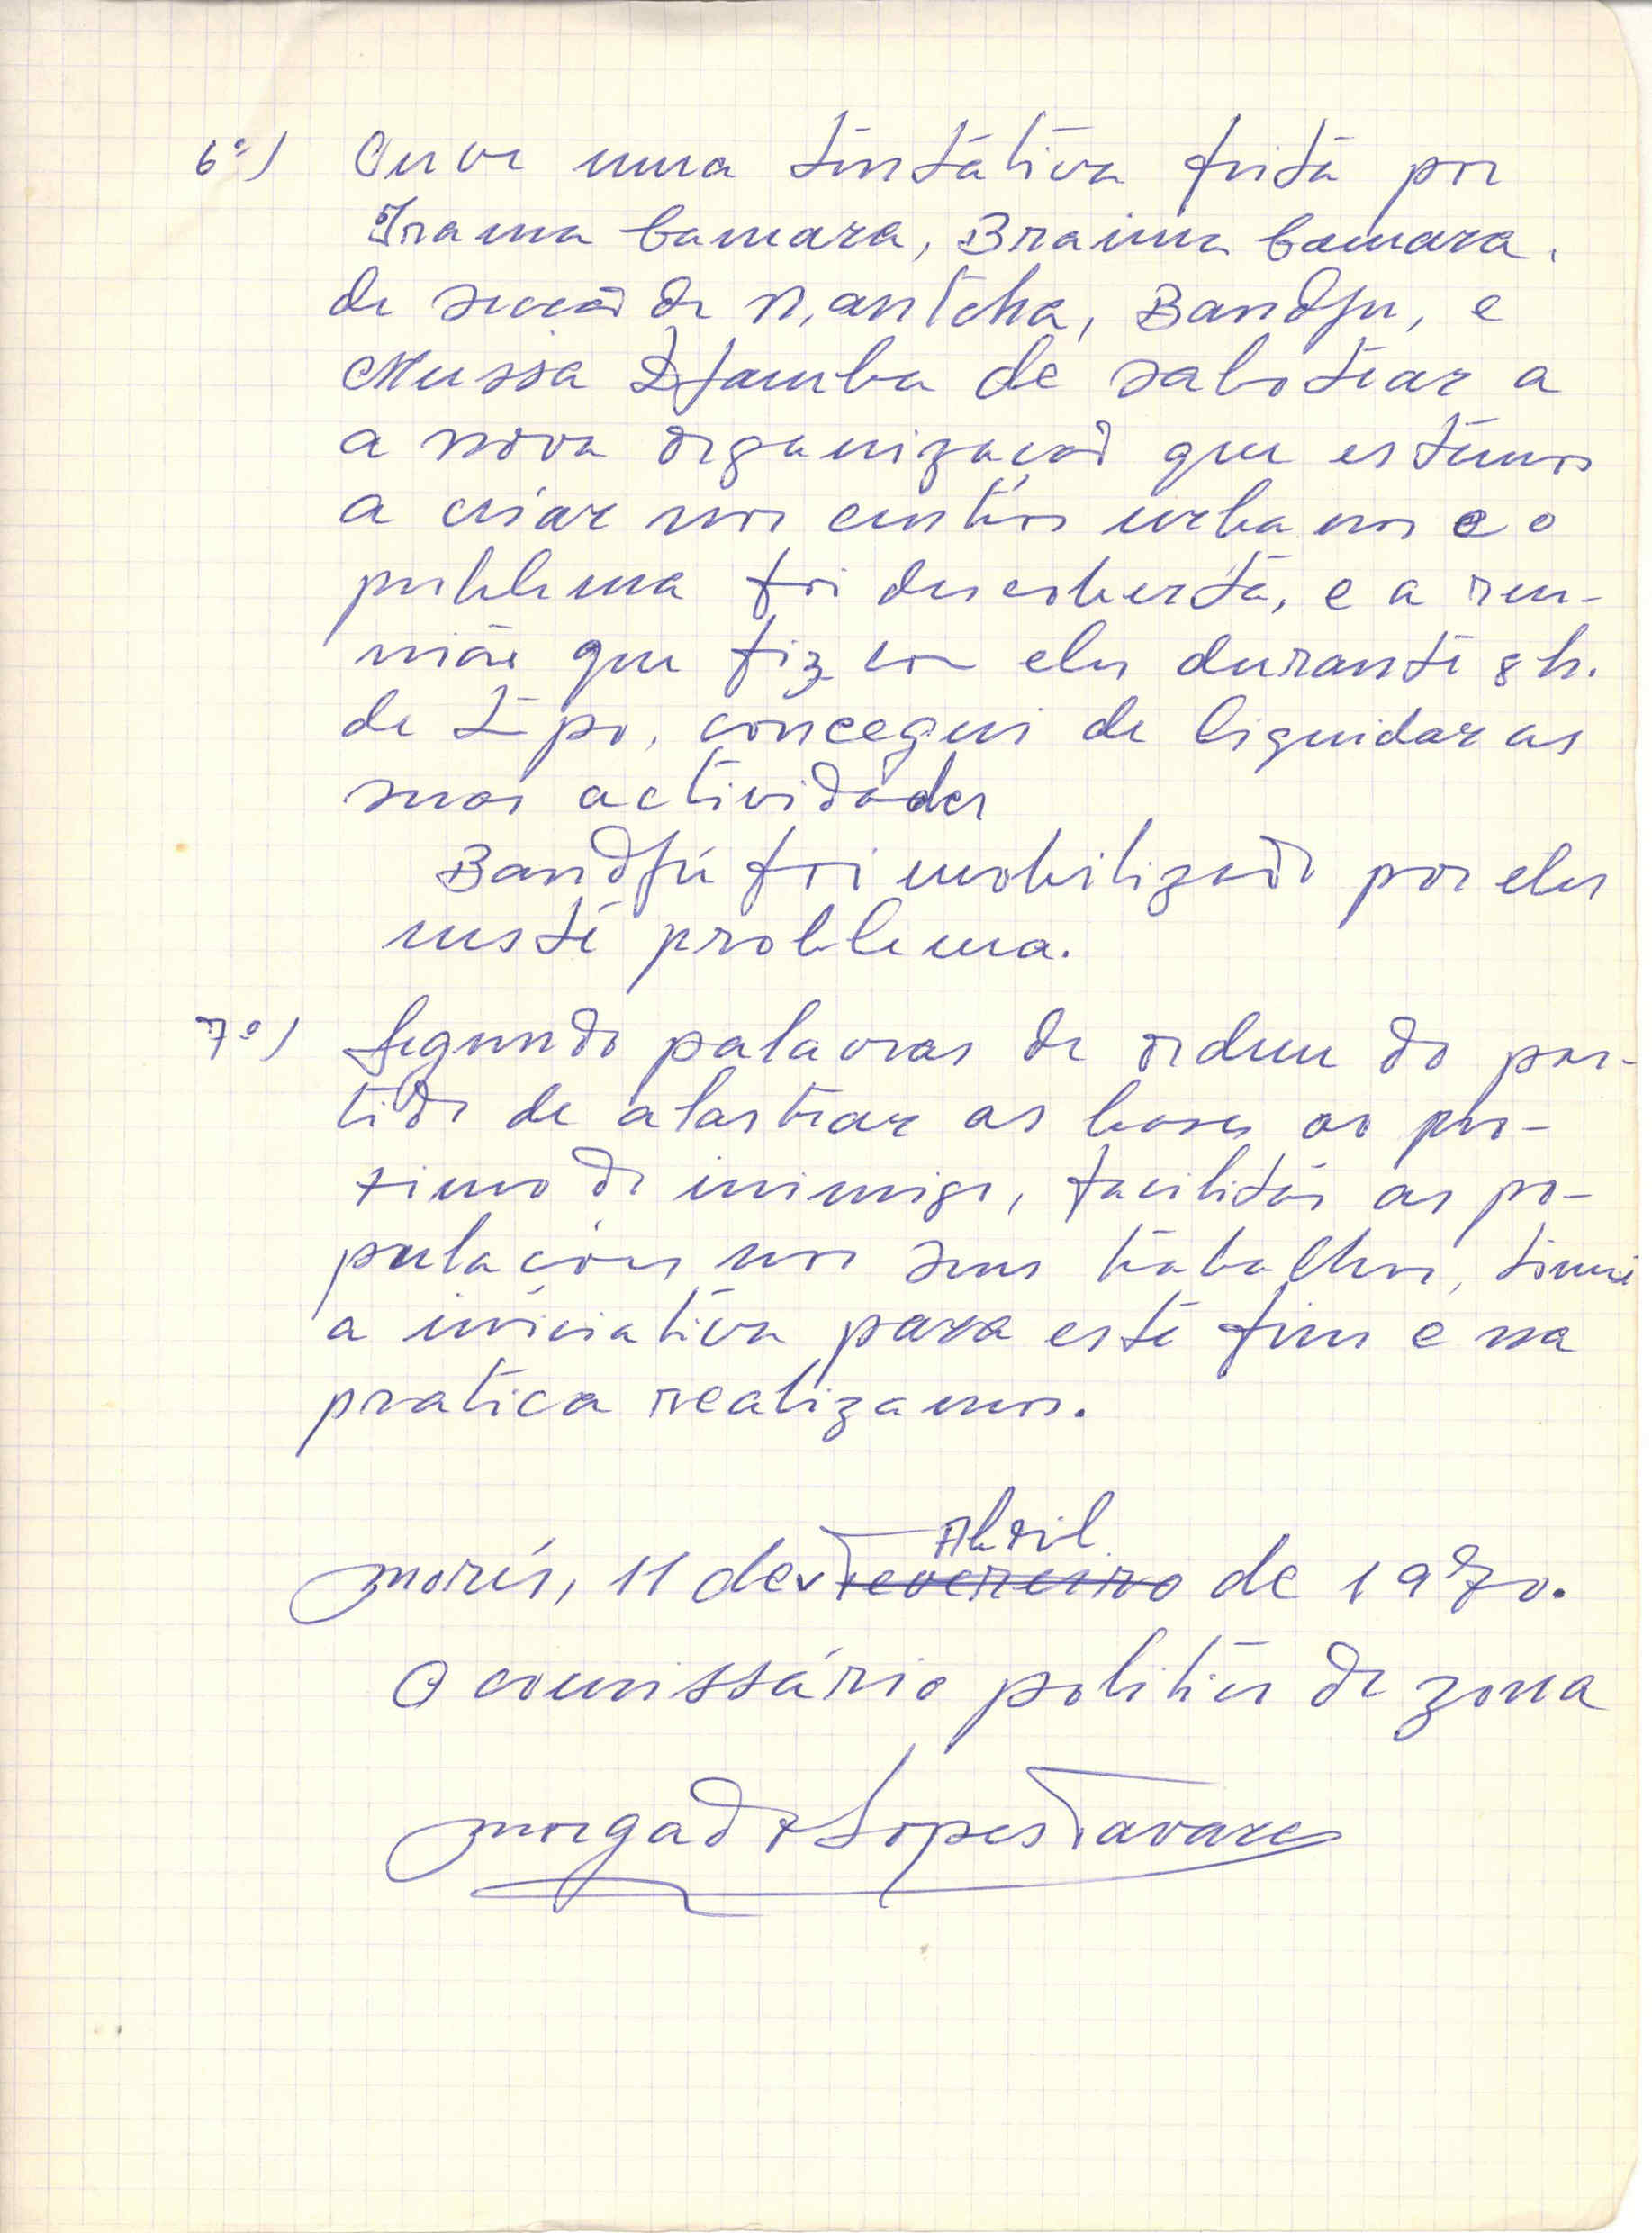 6º) Ouve uma tentativa feita por
Irama Camara, Braima Camara,
de secção de N,antcha, Bandju, e
Mussa Djamba de sabotear a
a nova organização que estamos
a criar nos centros urbanos e o
problema foi descoberta, e a reu-
nião que fiz com eles durante 8 h.
de Tpo, conceguí de liquidar as
suas actividades
Bandjú foi mobilizado por eles
neste problema.
7º) Segundo palavras de ordem do par-
tido de alastrar as bases ao pro-
ximo do inimigo, facilitar as po-
pulações nos seus trabalhos,
a iniciativa para este fim e na
pratica realizamos.
Abril
Morés, 11 de Fevereiro de 1970.
O comissário politico de zona
Morgado Lopes Tavares